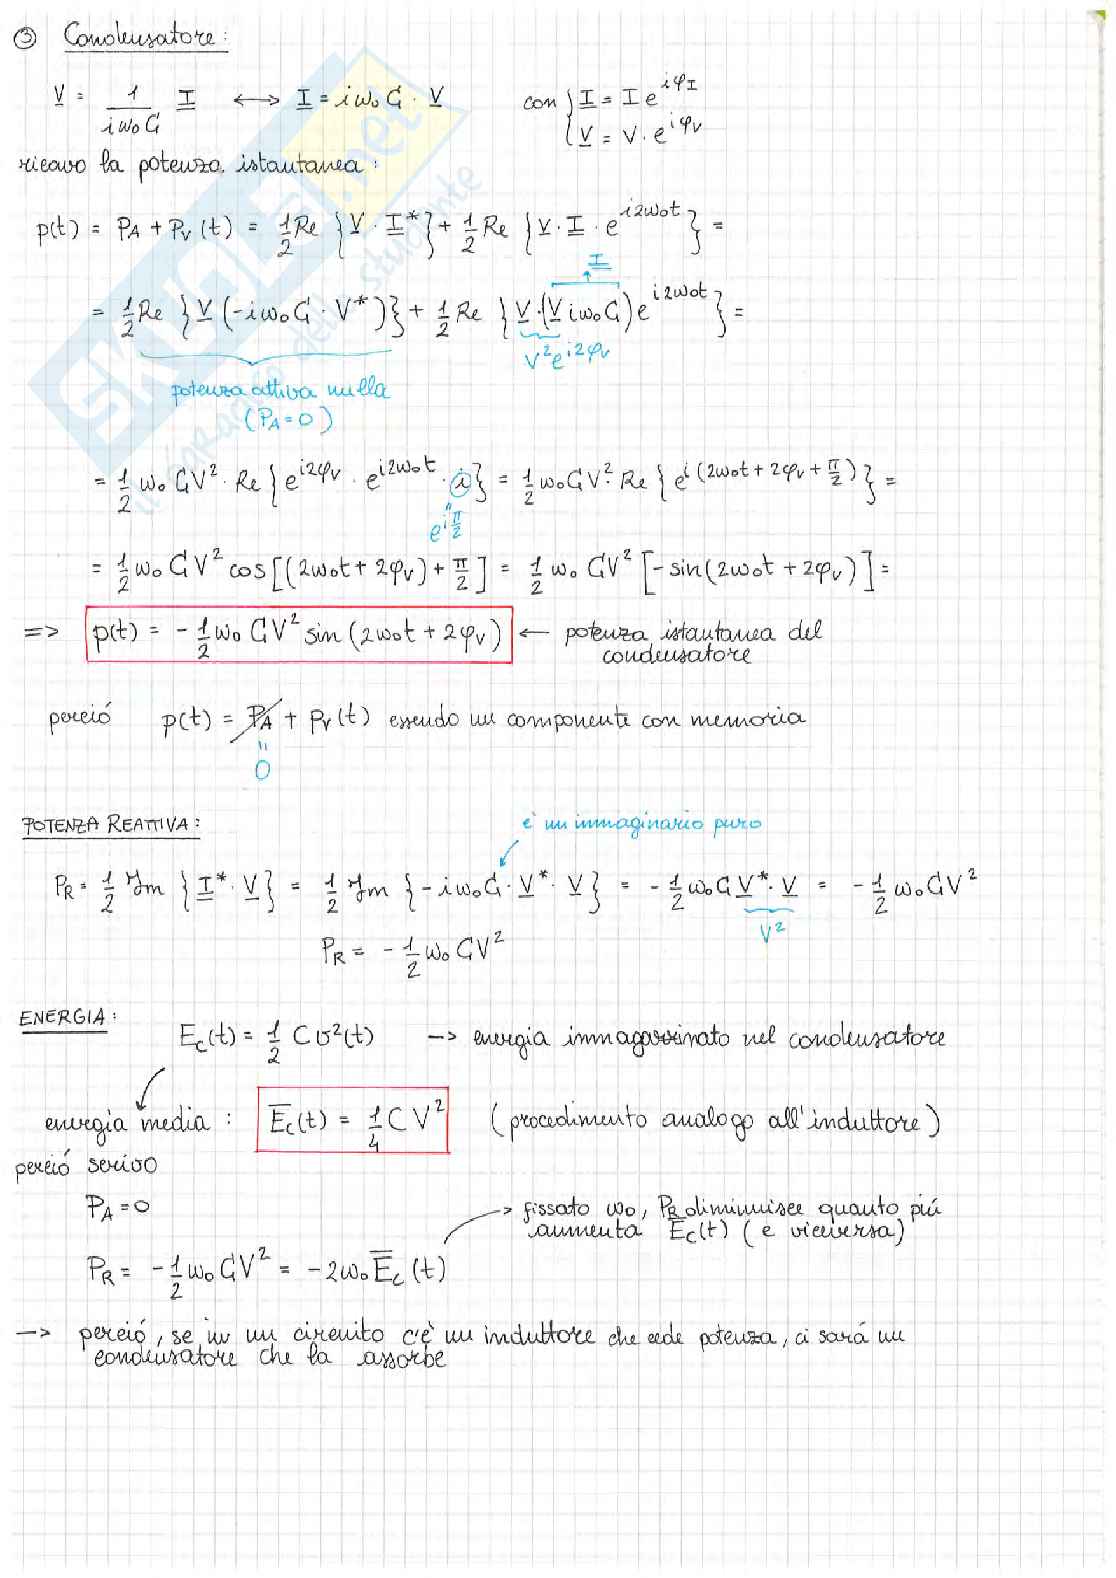 ③ Condensatore:
V = 1/(iω₀C) I ⟷ I = iω₀C · V con { I = I e^{iφ_I}
V = V · e^{iφ_V}
ricavo la potenza istantanea:
p(t) = P_A + P_V(t) = 1/2 Re {V · I*} + 1/2 Re {V · I · e^{i2ω₀t}} =
I
= 1/2 Re {V (-iω₀C · V*)} + 1/2 Re {V·(V iω₀C) e^{i2ω₀t}} =
V² e^{i2φ_V}
potenza attiva nulla
(P_A = 0)
= 1/2 ω₀CV² · Re {e^{i2φ_V} · e^{i2ω₀t} · i} = 1/2 ω₀CV² · Re {e^{i(2ω₀t + 2φ_V + π/2)}} =
"
e^{iπ/2}
= 1/2 ω₀CV² cos[(2ω₀t + 2φ_V) + π/2] = 1/2 ω₀ CV² [-sin(2ω₀t + 2φ_V)] =
=> p(t) = -1/2 ω₀ CV² sin(2ω₀t + 2φ_V) ← potenza istantanea del
condensatore
perció p(t) = P_A + P_V(t) essendo un componente con memoria
"
0
POTENZA REATTIVA:
è un immaginario puro
P_R = 1/2 Im {I* · V} = 1/2 Im {-iω₀C · V* · V} = -1/2 ω₀C V* · V = -1/2 ω₀CV²
V²
P_R = -1/2 ω₀CV²
ENERGIA:
E_C(t) = 1/2 C v²(t) → energia immagazzinato nel condensatore
energia media: Ē_C(t) = 1/4 C V² (procedimento analogo all'induttore)
perció scrivo
P_A = 0
→ fissato ω₀, P_R diminuisce quanto piú
aumenta E_C(t) (e viceversa)
P_R = -1/2 ω₀CV² = -2ω₀ Ē_C(t)
→ perció, se in un circuito c'è un induttore che cede potenza, ci sará un
condensatore che la assorbe
SKUOLA.net
il paradiso dello studente